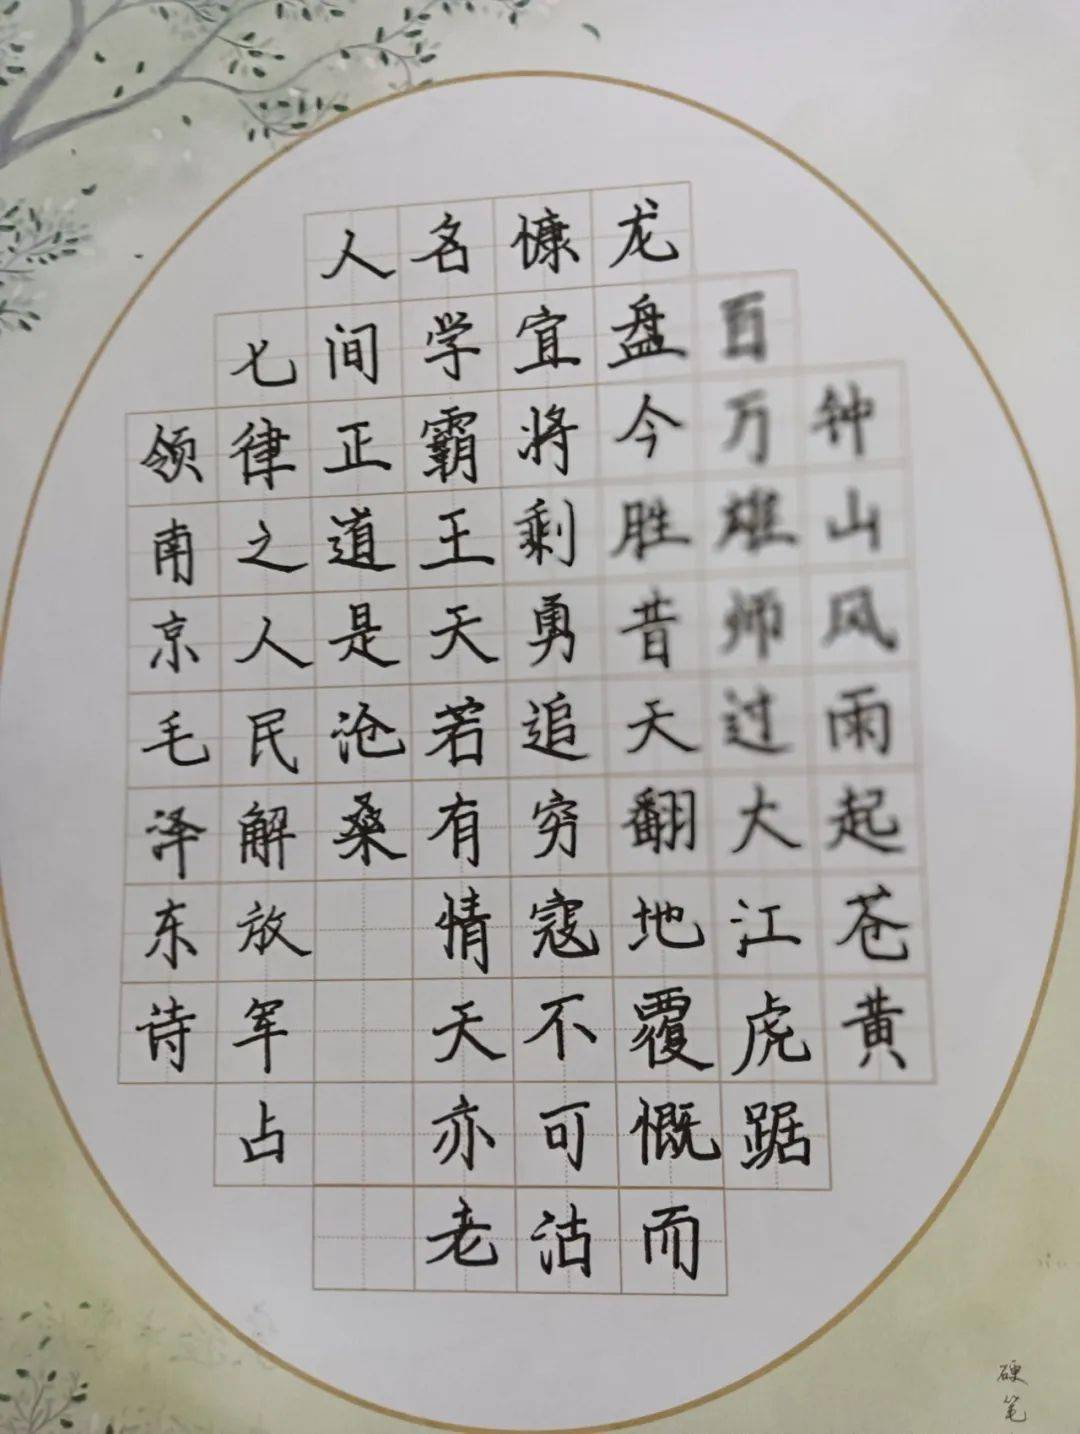 钟山风雨起苍黄
百万雄师过大江虎踞
龙盘今胜昔天翻地覆慨而
慷宜将剩勇追穷寇不可沽
名学霸王天若有情天亦老
人间正道是沧桑
七律之人民解放军占
领南京毛泽东诗
硬笔